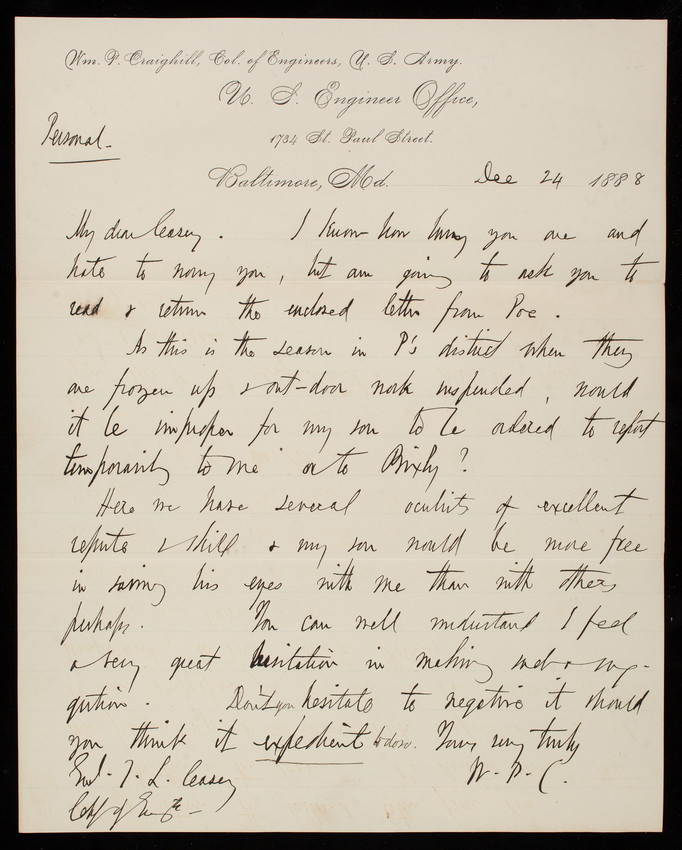 Wm. P. Craighill, Col. of Engineers, U. S. Army.
U. S. Engineer Office,
1734 St. Paul Street.
Personal.
Baltimore, Md. Dec 24 1888
My dear Casey. I know how busy you are and
hate to worry you, but am going to ask you to
read & return the enclosed letter from Poe.
As this is the season in P's district when they
are frozen up & out-door work suspended, would
it be improper for my son to be ordered to report
temporarily to me or to Bixby?
Here we have several oculists of excellent
repute & skill & my son would be more free
in saving his eyes with me than with others
perhaps. You can well understand I feel
a very great hesitation in making such a sug-
gestion. Don't you hesitate to negative it should
you think it expedient to do so. Yours very truly
Genl. T. L. Casey W. P. C.
Chf of Eng